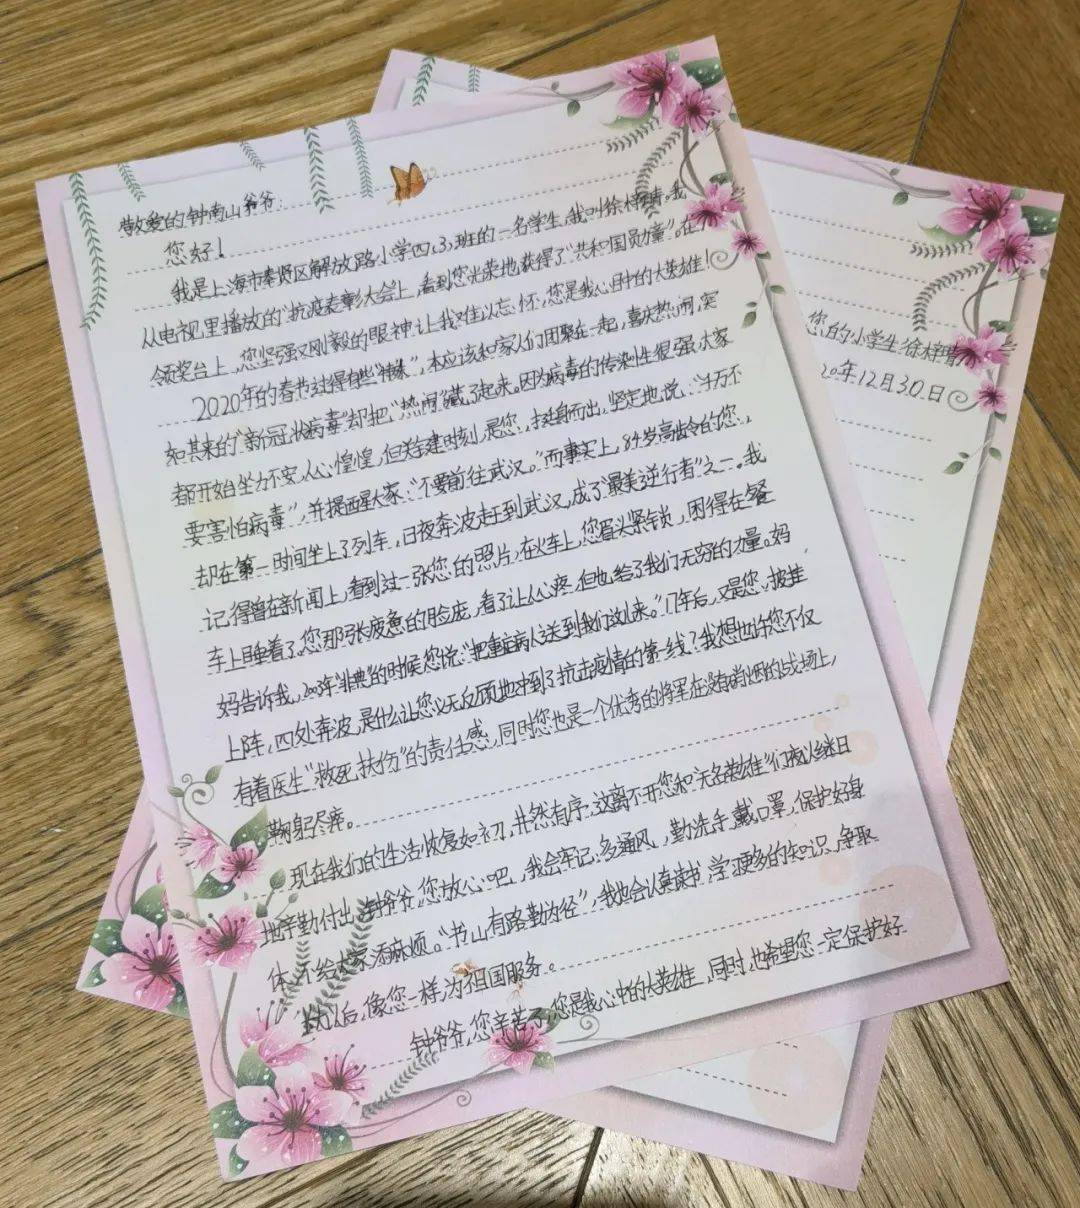 敬爱的钟南山爷爷：
您好！
我是上海市奉贤区解放路小学四、3、班的一名学生，我叫徐梓晴。我
从电视里播放的“抗疫表彰大会”上，看到您光荣地获得了“共和国勋章”。在
领奖台上，您坚强又刚毅的眼神让我难以忘怀，您是我心目中的大英雄！
2020年的春节过得有些“特殊”，本应该和家人们团聚在一起，喜庆热闹，突
如其来的“新冠状病毒”却把“热闹”藏了起来。因为病毒的传染性很强，大家
都开始坐力不安，人心惶惶，但关键时刻，是您，挺身而出，坚定地说：“千万不
要害怕病毒”，并提醒大家：“不要前往武汉。”而事实上，84岁高龄令的您，
却在第一时间坐上了列车，日夜奔波赶到武汉，成了“最美逆行者”之一。我
记得曾在新闻上，看到过一张您的照片，在火车上，您眉头紧锁，困得在餐
车上睡着了，您那张疲惫的脸庞，看了让人心疼，但也给了我们无穷的力量。妈
妈告诉我，2003年“非典”的时候您说：“把重症病人送到我们这儿来。”17年后，又是您，披挂
上阵，四处奔波，是什么让您义无反顾地冲到了抗击疫情的第一线？我想也许您不仅
有着医生“救死扶伤”的责任感，同时您也是一个优秀的将军在没有硝烟的战场上，
鞠躬尽瘁。
现在我们的生活恢复如初，井然有序，这离不开您和“无名英雄”们夜以继日
地辛勤付出，钟爷爷，您放心吧，我会牢记：多通风，勤洗手，戴口罩，保护好身
体，不给大家添麻烦。“书山有路勤为径”，我也会认真读书，学习更多的知识，争取
长大以后，像您一样，为祖国服务。
钟爷爷，您辛苦了，您是我心中的大英雄，同时，也希望您一定保护好
您的小学生：徐梓晴
20年12月30日